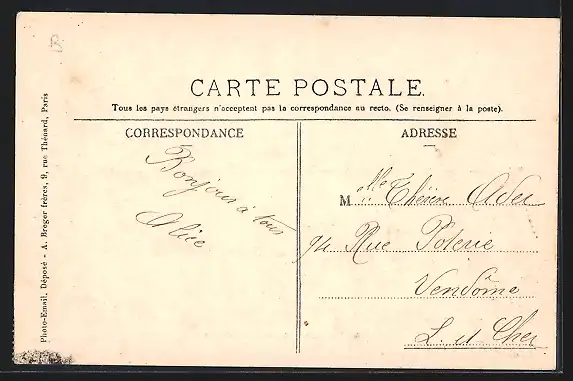 B
CARTE POSTALE.
Tous les pays étrangers n'acceptent pas la correspondance au recto. (Se renseigner à la poste).
CORRESPONDANCE
Bonjour à tous
Alice
ADRESSE
Melle Thérèse
74 Rue Poterie
Vendôme
L. et Cher
Photo-Email, Déposé - A. Breger frères, 9, rue Thénard, Paris